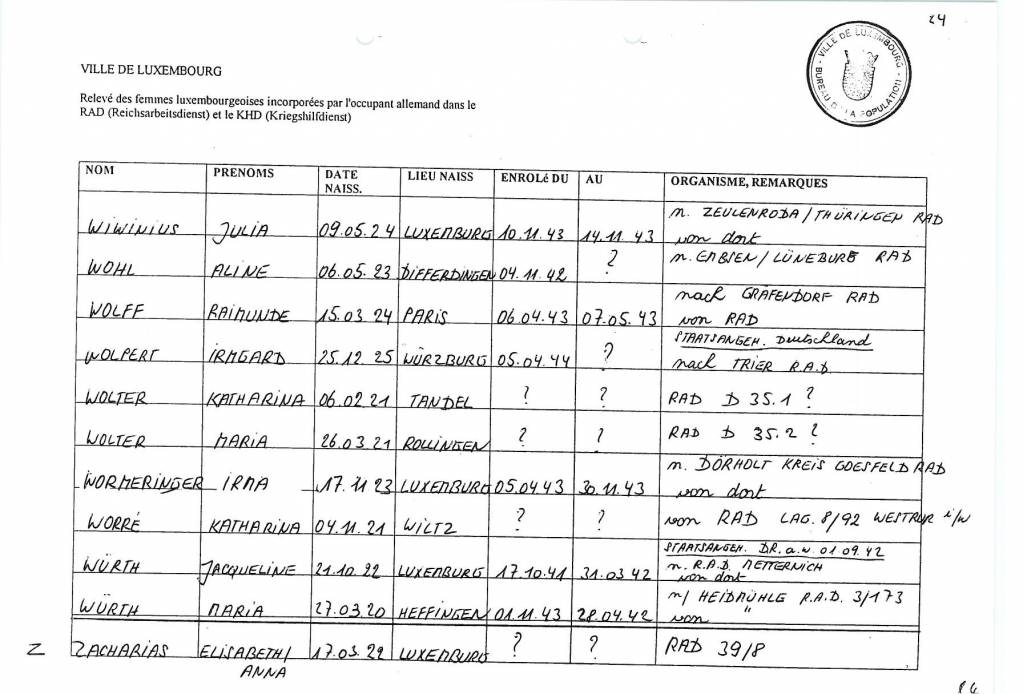 24
VILLE DE LUXEMBOURG
BUREAU DE LA POPULATION
VILLE DE LUXEMBOURG
Relevé des femmes luxembourgeoises incorporées par l'occupant allemand dans le
RAD (Reichsarbeitsdienst) et le KHD (Kriegshilfdienst)
NOM PRENOMS DATE NAISS. LIEU NAISS ENROLé DU AU ORGANISME, REMARQUES
WIWINIUS JULIA 09.05.24 LUXEMBURG 10.11.43 14.11.43 n. ZEULENRODA/THÜRINGEN RAD
von dort
WOHL ALINE 06.05.23 DIFFERDINGEN 04.11.42 ? n. EBSIEN/LÜNEBURG RAD
WOLFF RAIMUNDE 15.03.24 PARIS 06.04.43 07.05.43 nach GRÄFENDORF RAD
von RAD
WOLPERT IRMGARD 25.12.25 WÜRZBURG 05.04.44 ? STAATSANGEH. Deutschland
nach TRIER R.A.D.
WOLTER KATHARINA 06.02.21 TANDEL ? ? RAD D 35.1 ?
WOLTER MARIA 26.03.21 ROLLINGEN ? ? RAD D 35.2 ?
WORMERINGER IRMA 17.11.23 LUXEMBURG 05.04.43 30.11.43 n. DÖRHOLT KREIS GOESFELD RAD
von dort
WORRÉ KATHARINA 04.11.21 WILTZ ? ? von RAD LAG. 8/92 i/W
WÜRTH JACQUELINE 21.10.22 LUXEMBURG 17.10.41 31.03.42 STAATSANGEH. DR. a.W. 01.09.42
n. R.A.D. METTERNICH
von dort
WÜRTH MARIA 27.03.20 HEFFINGEN 01.11.43 28.04.42 n/ HEIDMÜHLE R.A.D. 3/173
von "
Z ZACHARIAS ELISABETH/ 17.03.22 LUXEMBURG ? ? RAD 39/8
ANNA